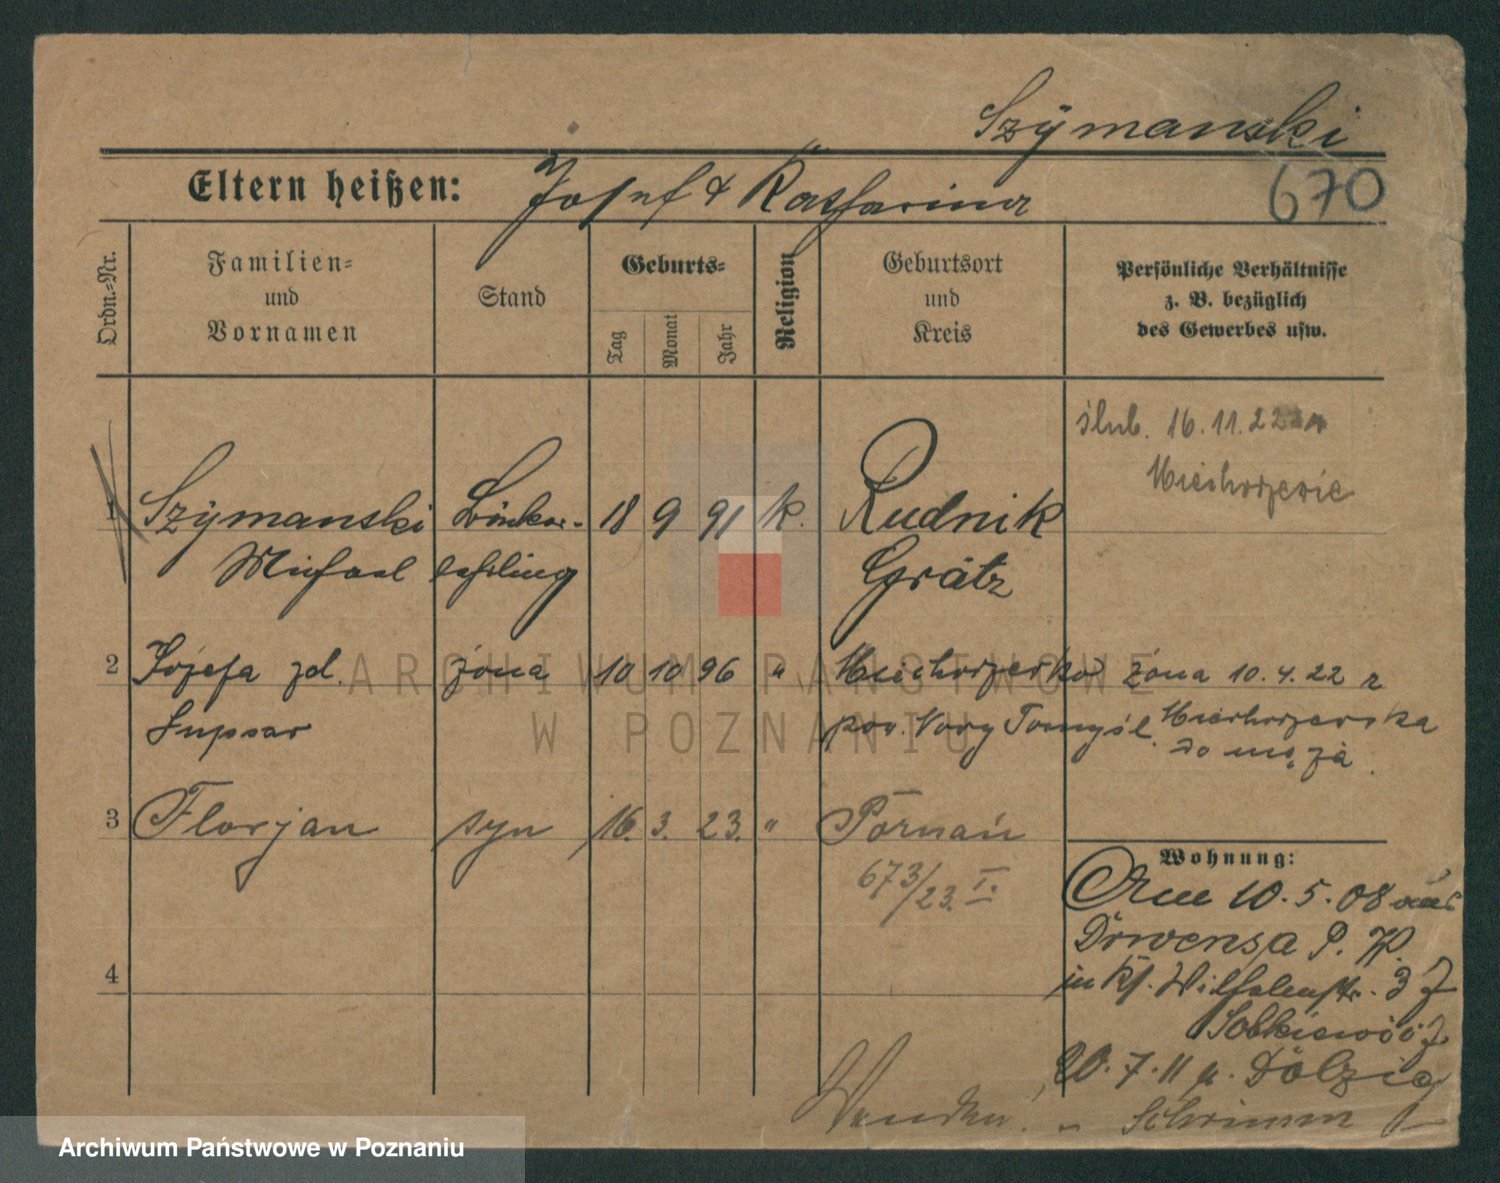 Szÿmanski
Eltern heißen: Josef & Katharina
670
Ordn.-Nr.
Familien-
und
Vornamen
Stand
Geburts-
Tag
Monat
Jahr
Religion
Geburtsort
und
Kreis
Persönliche Verhältnisse
z. B. bezüglich
des Gewerbes usw.
ślub. 16.11.22
1 Szÿmanski 18 9 91 k. Rudnik
Michael lehrling Grätz
2 Józefa zd. żona 10 10 96 " żona 10.4.22 z
pow. Nowy Tomyśl.
do męża.
3 Florjan syn 16. 3. 23. " Poznań
673/23. I.
Wohnung:
Am 10.5.08 aus
Drwensa P.
in Kf. Wilhelmstr. 3
4
20.7.11 n. Dolzig
Schrimm
ARCHIWUM PAŃSTWOWE
W POZNANIU
Archiwum Państwowe w Poznaniu